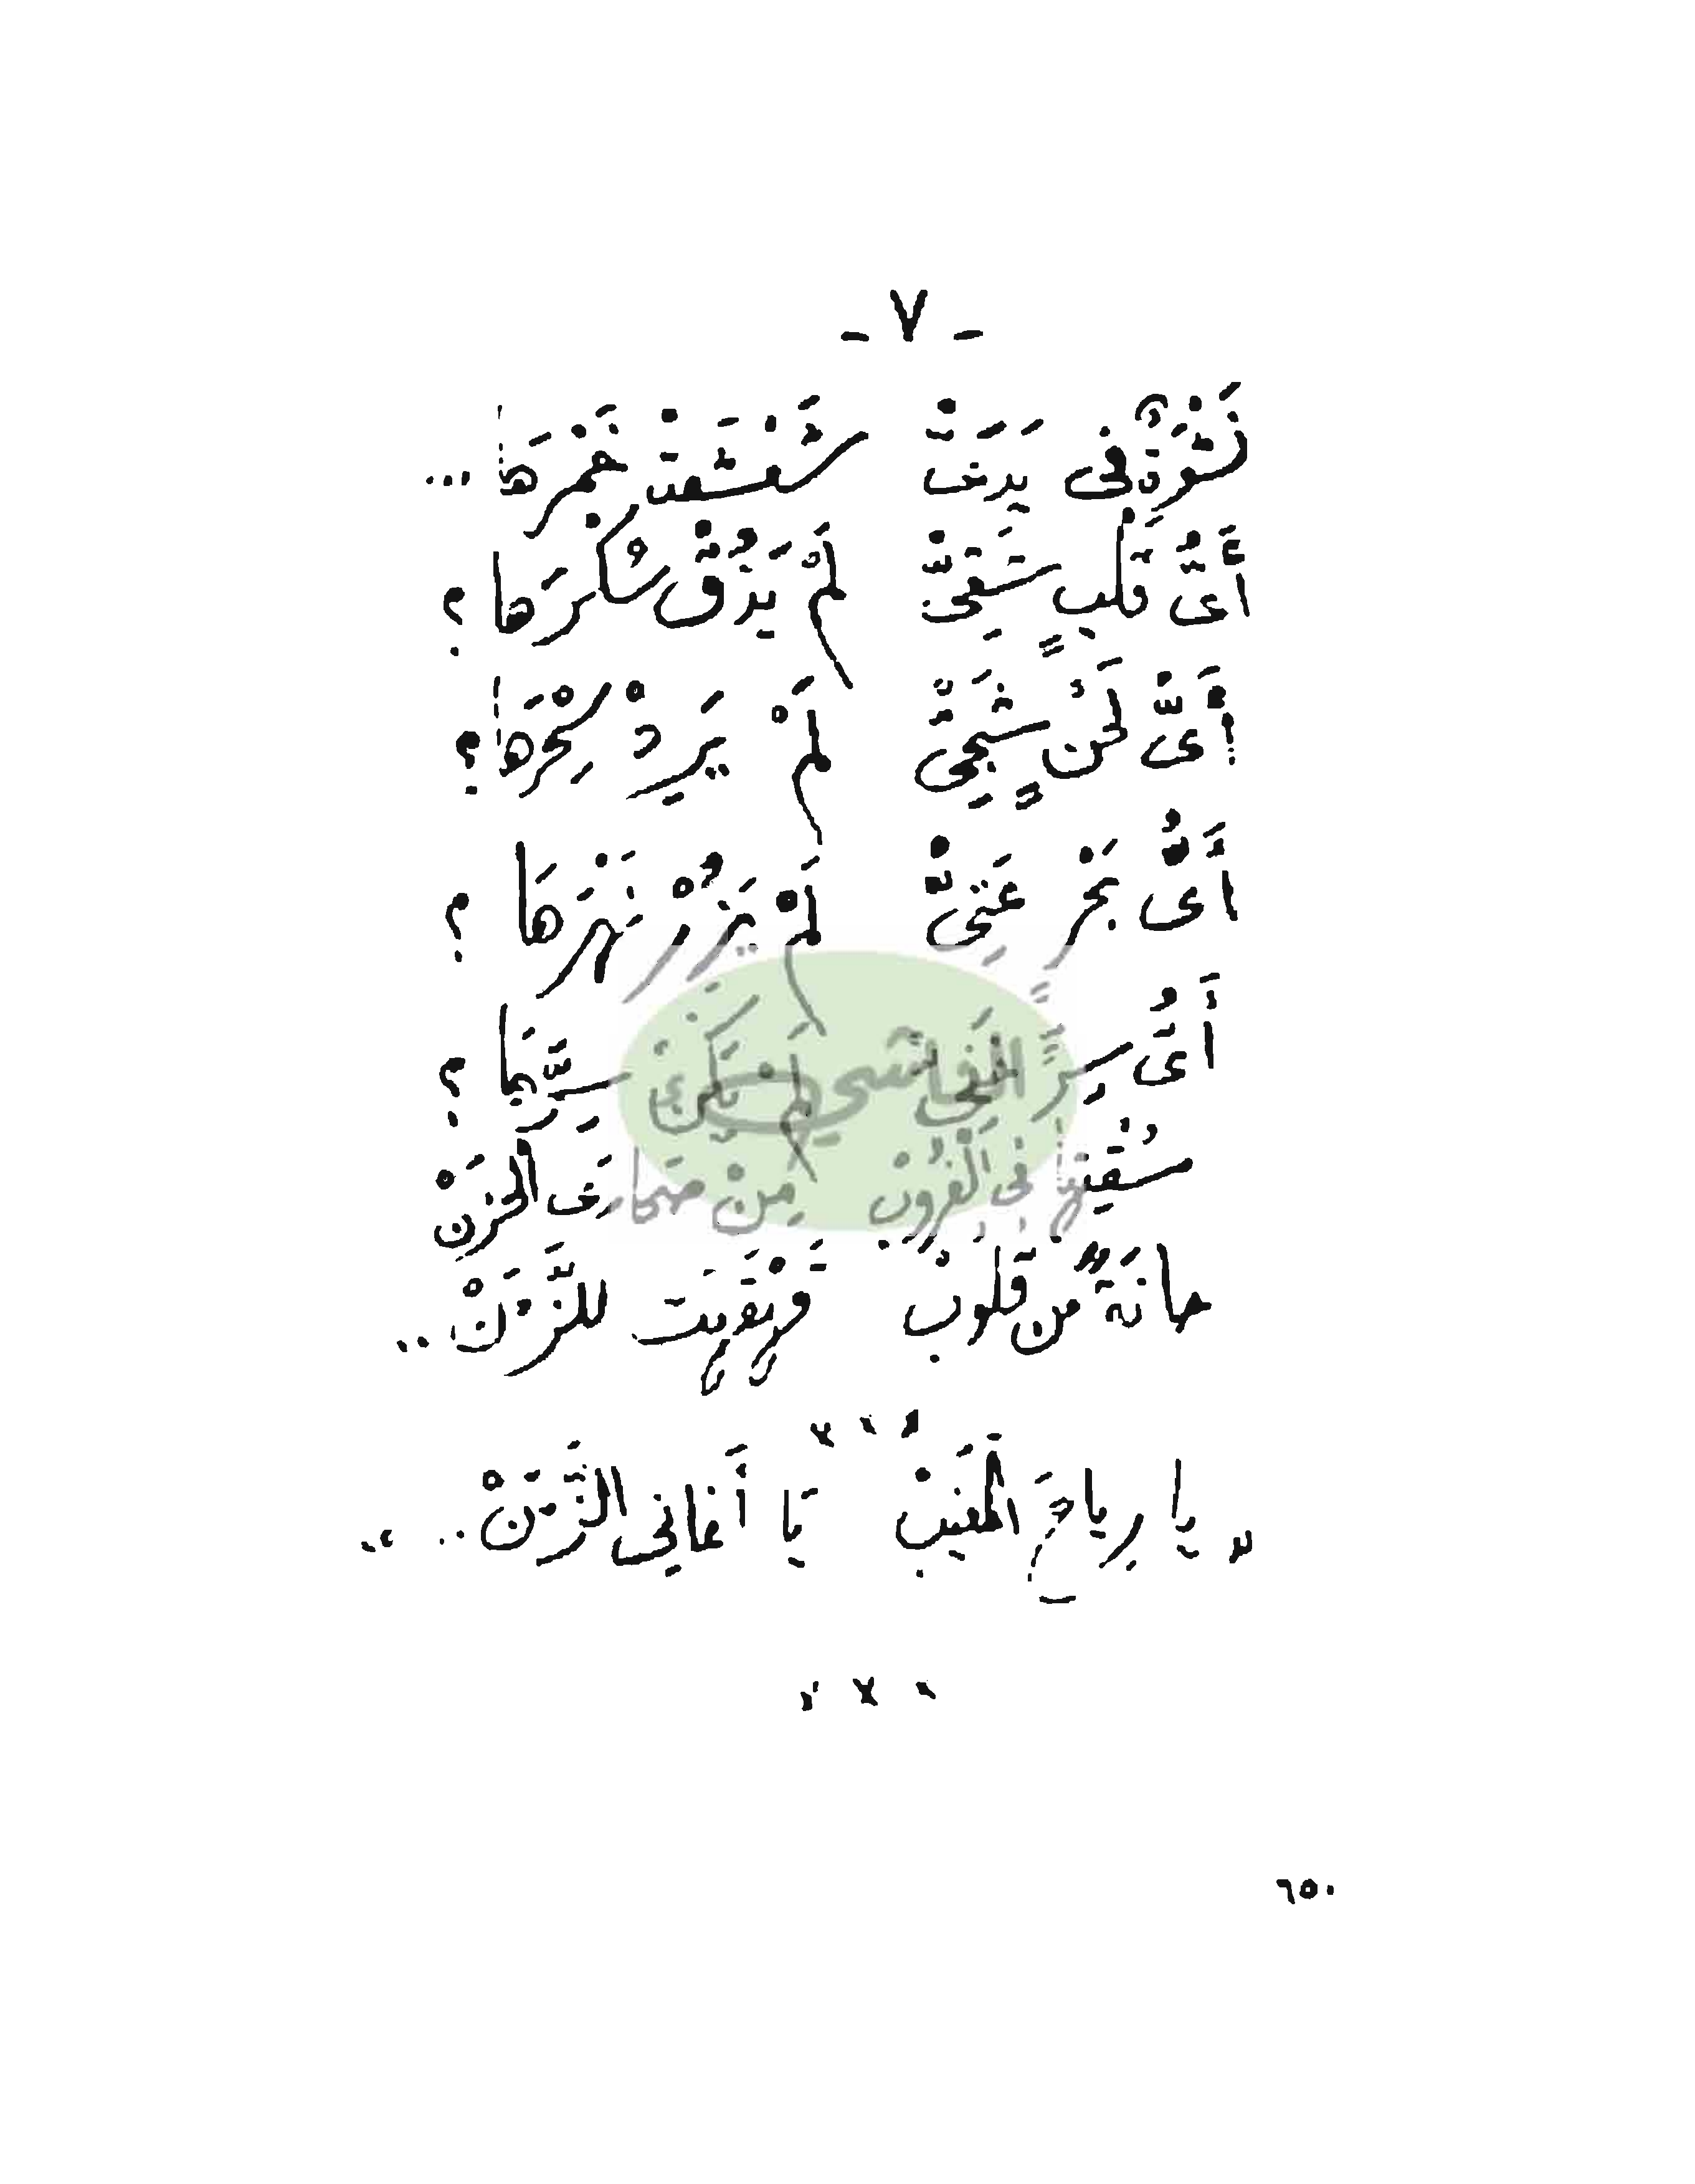 - ٧ -
نَشْوَةٌ فى يَدَىَّ شَعْشَعَتْ خَمْرَها ...
أَىُّ قَلْبٍ شَقِىّْ لَمْ يَذُقْ سُكْرَها ؟
أَىُّ لَحْنٍ شَجِىّْ لَمْ يَرِدْ سِحْرَها ؟
أَىُّ بَحْرٍ عَتِىّْ لَمْ يَزُرْ نَهْرَها ؟
أَىُّ سِرٍّ خَفِىّْ لَمْ يَكُنْ سِرَّها ؟
سُقْيتها فى الْغُرُوبْ مِنْ صَحارَى الْحَزَنْ
حانَةٌ من قلُوبْ للزَّمَنْ ..
× × ×
" يا رِياحَ الْمَغيبْ يَا أَغانى الزَّمَنْ .. "
× × ×
٦٥٠